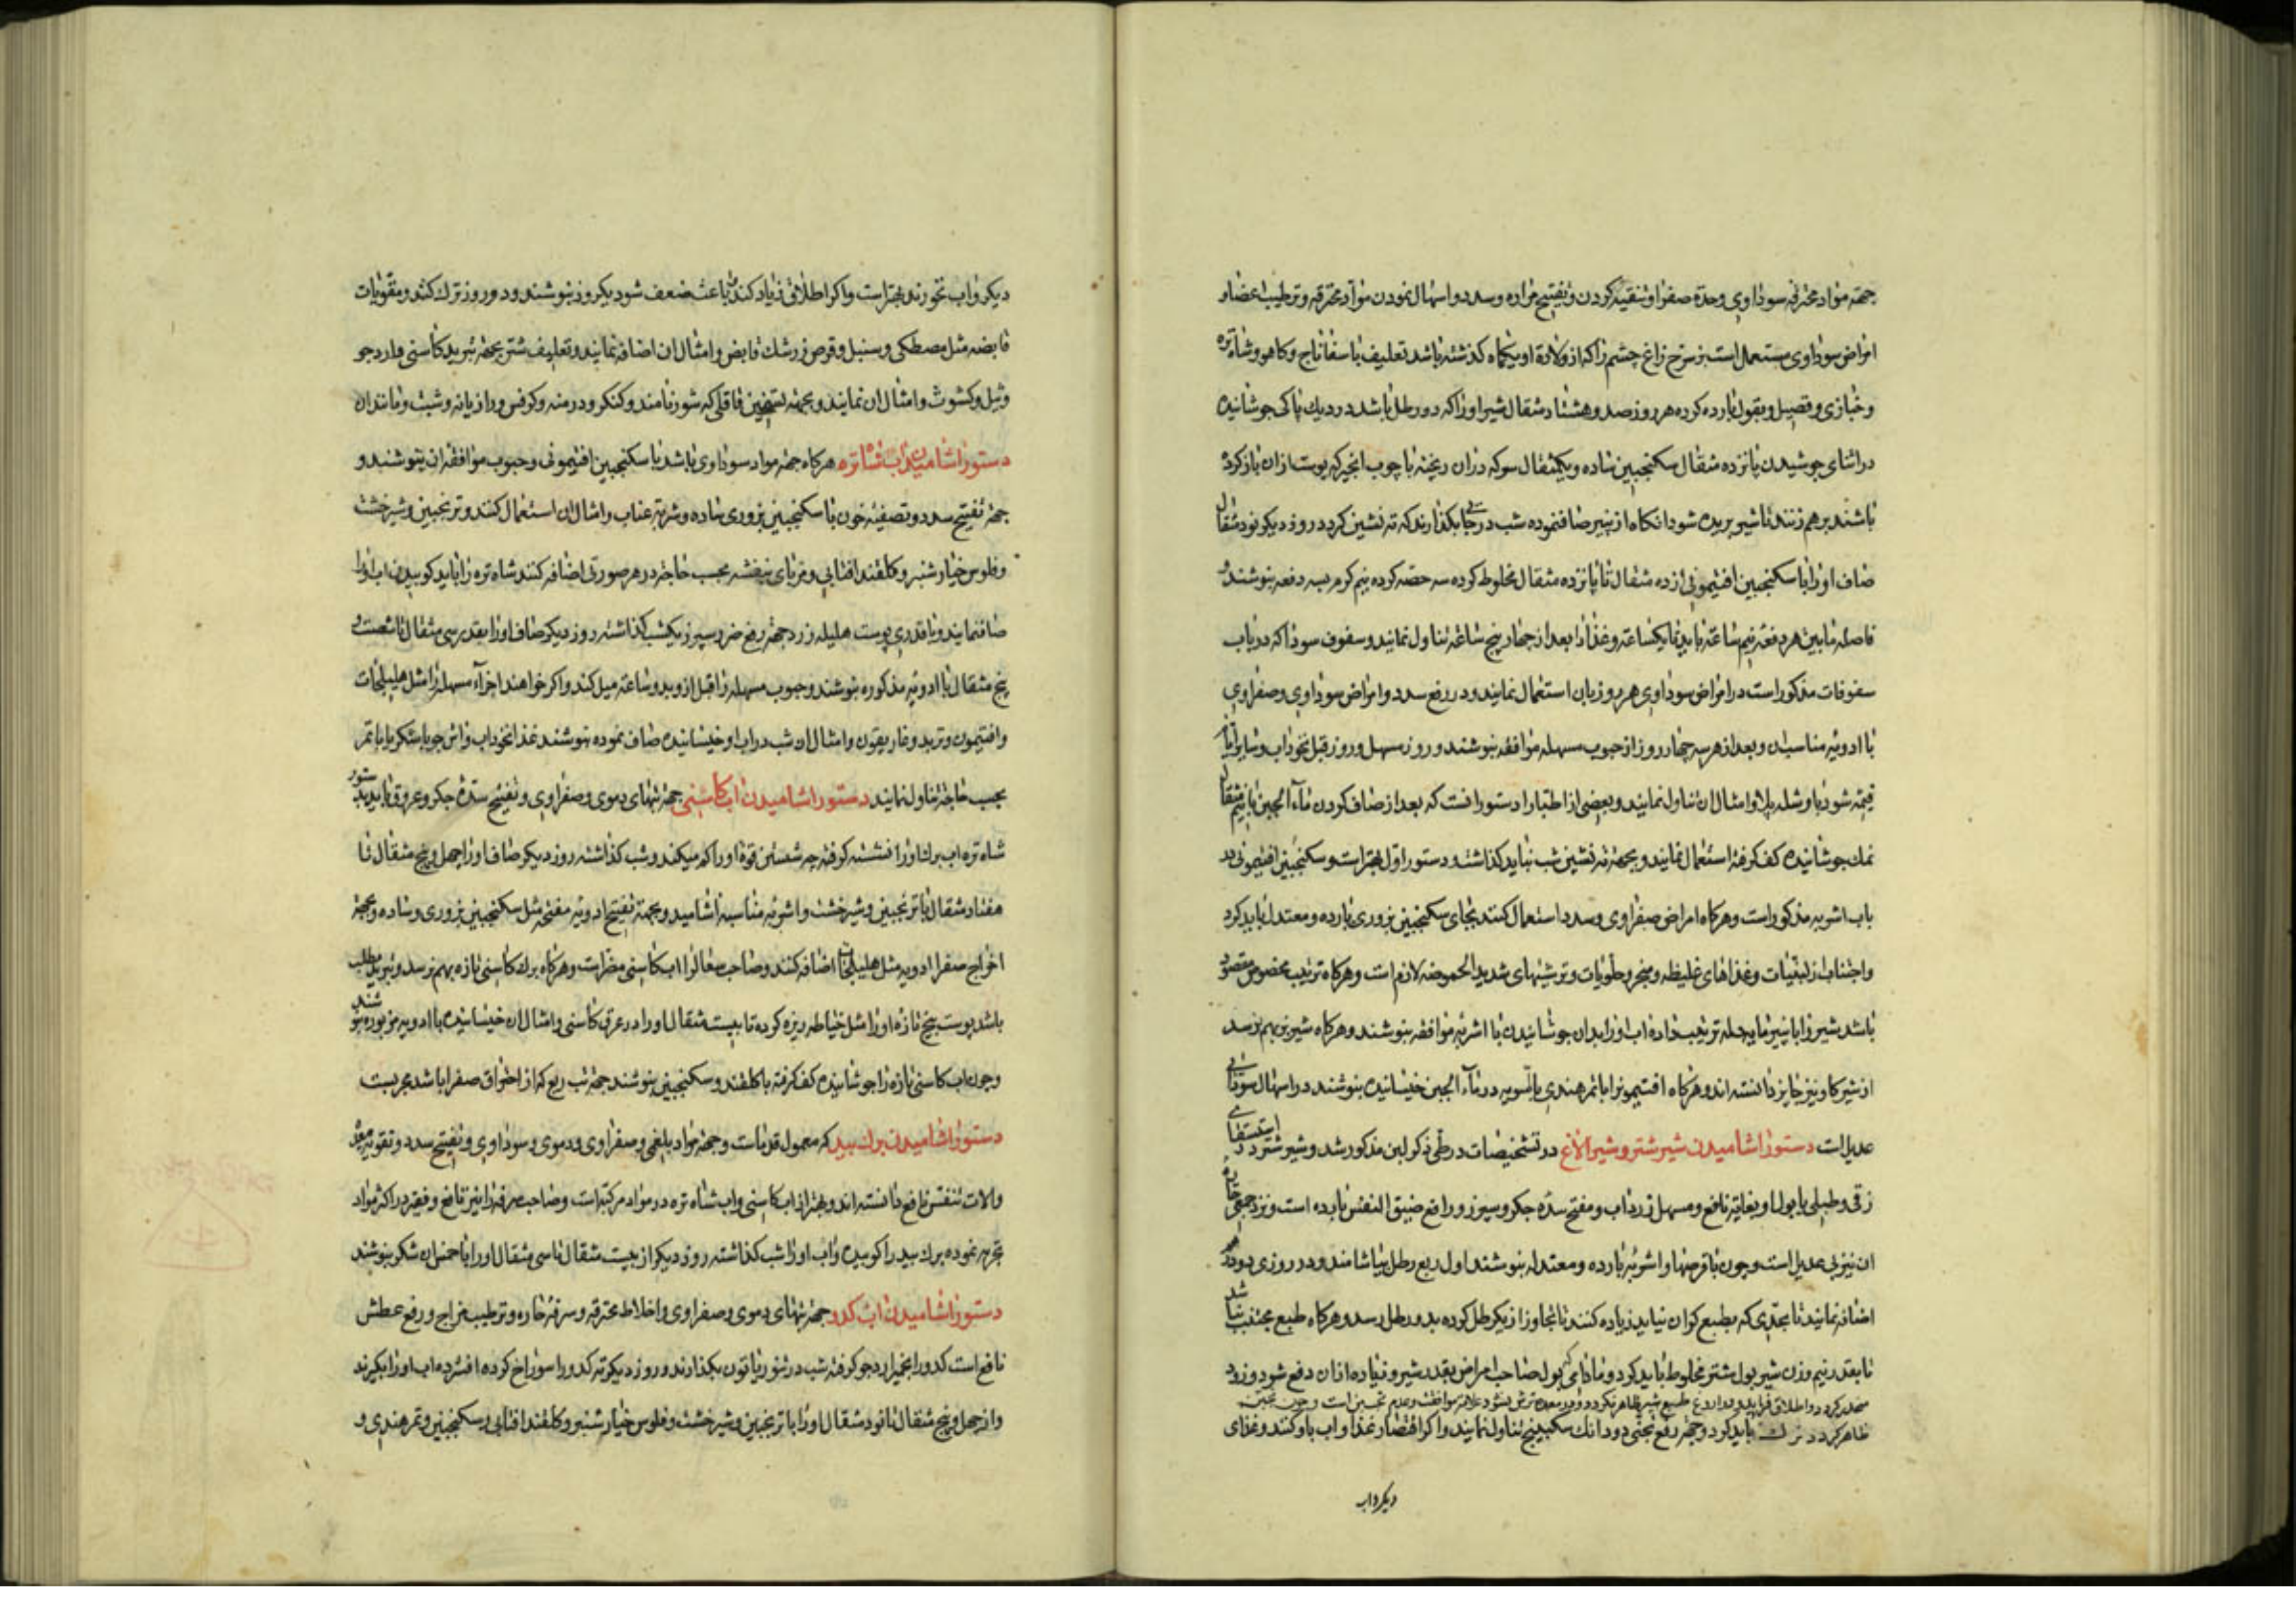 جهة مواد محترقه سوداوی وحدة صفرا و تنقیه کردن و تفتیح مواده وسدد و اسهال نمودن مواد محترقه و ترطیب اعضا و
امراض سوداوی مستعمل است بز سرخ زاغ چشم را که از ولادة او یکماه کذشته باشد تعلیف با سفاناج و کاهو و شاه تره
و خبازی و قصیل و بقول بارده کرده هر روز صد و هشتاد مثقال شیر او را که دو رطل باشد در دیك پاکی جوشانیده
در اثنای جوشیدن پانزده مثقال سکنجبین ساده و یکمثقال سرکه دران ریخته با چوب انجیر که پوست ازان باز کرده
باشند بر هم زنند تا شیر بریده شود انکاه از پنیر صاف نموده شب در جایی بکذارند که ته نشین کردد روز دیکر نود مثقال
صاف او را با سکنجبین افتیمونی از ده مثقال تا پانزده مثقال مخلوط کرده سه حصه کرده نیم کرم بسه دفعه بنوشند و
فاصله مابین هر دفعه نیم ساعة باید تا یکساعة و غذا را بعد از چهار پنج ساعة تناول نمایند و سفوف سودا که در باب
سفوفات مذکور است در امراض سوداوی هر روز بان استعمال نمایند و در رفع سدد و امراض سوداوی و صفراوی
با ادویه مناسب ان و بعد از هر سه چهار روز از حبوب مسهله موافقه بنوشند و روز مسهل و روز قبل نخوداب و سایر ایام
قیمه شوربا و شله پلاو و امثال ان تناول نمایند و بعضی از اطبا را دستور انست که بعد از صاف کردن ماء الجبن با نیم مثقال
نمك جوشانیده کف کرفته استعمال نمایند و بجهة ته نشین شب نباید کذاشت و دستور اول بهتر است و سکنجبین افتیمونی در
باب اشربه مذکور است و هرکاه امراض صفراوی و سدد استعمال کنند بجای سکنجبین بزوری بارده و معتدل باید کرد
و اجتناب از لبنیات و غذاهای غلیظه و مبخر و حلویات و ترشیهای شدید الحموضه لازم است و هرکاه ترتیب مخصوص مقصود
باشد شیر را با پنیر مایه حمله ترتیب داده اب او را بدان جوشانیدن با اشربه موافقه بنوشند و هرکاه شیر بز بهم نرسد
از شیر کاو نیز جایز دانسته اند و هرکاه افتیمون را با تمر هندی بالسویه در ماء الجبن خیسانیده بنوشند در اسهال سودا بی
عدیل است دستور اشامیدن شیر شتر و شیر الاغ در تشخیصات در طی ذکر لبن مذکور شد و شیر شتر در استسقای
زقی و طبلی با بول او بغایة نافع و مسهل زرداب و مفتح سده جکر و سپرز و رافع ضیق النفس بارده است و نزد جمعی حاره
ان نیز بی عدیل است و چون با قرصها و اشربه بارده و معتدله بنوشند اول ربع رطل بیاشامند و در روزی دو درهم
اضافه نمایند تا بحدی که بطبع کران نیاید زیاده کنند تا تجاوز از یکرطل کرده بدو رطل رسد و هرکاه طبع مجتذب نباشد
تا بقدر نیم وزن شیر بول شتر مخلوط باید کرد و مادامی که بول صاحب امراض بقدر شیر و زیاده ازان دفع شود و زود
منحدر کردد و اطلاق فراید و در اروغ طبع شیر ظاهر نکردد و در معده ترش نشود علامة موافقت و عدم تجبن است و چون تجبن
ظاهر کردد ترك باید کرد و جهة رفع تجبن دو دانك سکبینج تناول نمایند و اکر اقتصار غذا و اب باو کنند و غذای
دیکر و اب
دیکر و اب نخورند بهتر است و اکر اطلاق زیاد کند که باعث ضعف شود یکروز بنوشند و دو روز ترك کنند و مقویات
قابضه مثل مصطکی و سنبل و قرص زرشك قابض و امثال ان اضافه نمایند و تعلیف شتر بجهة تبرید کاسنی و ارد جو
و ثیل و کشوث و امثال ان نمایند و بجهة تسخین قاقلی که شور نامند و کنکر و درمنه و کرفس و رازیانه و شبت و مانند ان
دستور اشامیدن اب شاتره هرکاه جهة مواد سوداوی باشد با سکنجبین افتیمونی و حبوب موافقه ان بنوشند و
جهة تفتیح سدد و تصفیه خون با سکنجبین بزوری ساده و شربة عناب و امثال ان استعمال کنند و ترنجبین و شیرخشت
و فلوس خیار شنبر و کلقند افتابی و مربای بنفشه بحسب حاجة در هر صورتی اضافه کنند شاه تره را باید کوبیدن اب او را
صاف نمایند و با قدری پوست هلیله زرد جهة رفع ضرر سپرز یکشب کذاشته روز دیکر صاف او را بقدر سی مثقال تا شصت و
پنج مثقال با ادویه مذکوره بنوشند و حبوب مسهله را قبل از و بدو ساعة میل کند و اکر خواهند اجزاء مسهله را مثل هلیلجات
و افتیمون و تربد و غاریقون و امثال ان شب در اب او خیسانیده صاف نموده بنوشند غذا نخوداب و اش جو با شکر یا با تمر
بحسب حاجة تناول نمایند دستور اشامیدن اب کاسنی جهة تبهای دموی و صفراوی و تفتیح سده جکر و عروق باید بدستور
شاه تره اب برك او را نشسته کرفته چه شستن قوة او را کم میکند و شب کذاشته روز دیکر صاف او را چهل و پنج مثقال تا
هفتاد مثقال با ترنجبین و شیرخشت و اشربه مناسبه اشامید و بجهة تفتیح ادویه مفتحه مثل سکنجبین بزوری و ساده و بجهة
اخراج صفرا ادویه مثل هلیلجات اضافه کنند و صاحب سعال را اب کاسنی مضر است و هرکاه برك کاسنی تازه بهم نرسد و تبرید مطلب
باشد پوست بیخ تازه او را مثل خیاطه ریزه کرده تا بیست مثقال او را در عرق کاسنی و امثال ان خیسانیده با ادویه مزبوره بنوشند
و چون اب کاسنی تازه را جوشانیده کف کرفته با کلقند و سکنجبین بنوشند جهة تب ربع که از احتراق صفرا باشد مجربست
دستور اشامیدن برك بید که معمول قدماست و جهة مواد بلغمی و صفراوی و دموی و سوداوی و تفتیح سدد و تقویة معده
و الات تنفس نافع دانسته اند و بهتر از اب کاسنی و اب شاه تره در مواد مرکبه است و صاحب سرفه را نیز نافع و فقیر در اکثر مواد
تجربه نموده برك بید را کوبیده و اب او را شب کذاشته روز دیکر از بیست مثقال تا سی مثقال او را با خمس ان شکر بنوشند
دستور اشامیدن اب کدو جهة تبهای دموی و صفراوی و اخلاط محترقه و سرفه حاره و ترطیب مزاج و رفع عطش
نافع است کدو را بخمیر ارد جو کرفته شب در تنور یا تون بکذارند و روز دیکر ته کدو را سوراخ کرده افشرده اب او را بکیرند
و از چهل و پنج مثقال تا نود مثقال او را با ترنجبین و شیرخشت و فلوس خیار شنبر و کلقند افتابی و سکنجبین و تمر هندی و